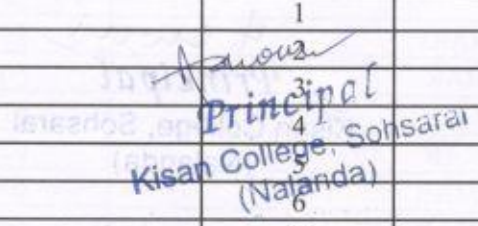 1
2
3
Principal
4
Kisan College, Sohsarai
5
(Nalanda)
6